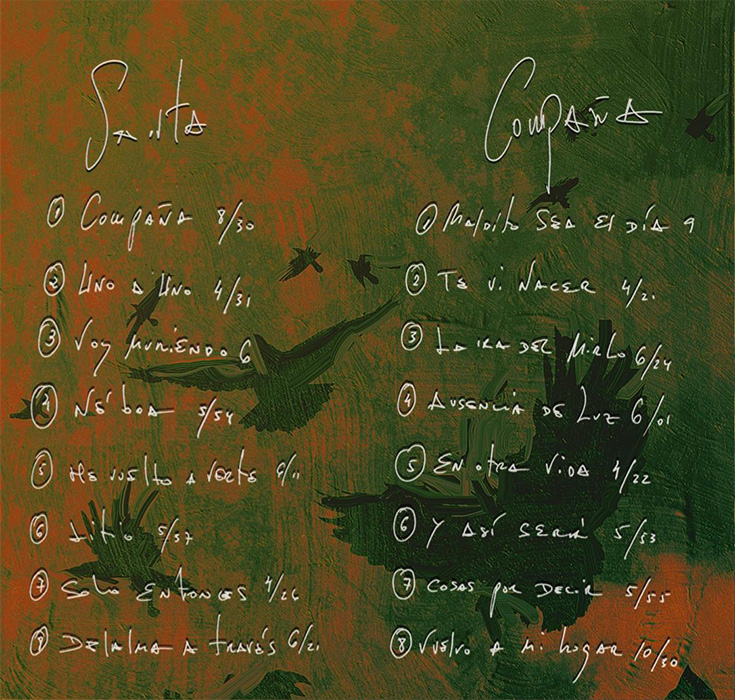 Santa
① Compaña 8/30
② Uno a Uno 4/31
③ Voy muriendo 6
④ Néboa 5/54
⑤ He vuelto a verte 6/11
⑥ Litio 5/57
⑦ Solo Entonces 4/26
⑧ Del alma a través 6/21
Compaña
① Maldito sea el día 9
② Te vi nacer 4/21
③ La ira del Mirlo 6/24
④ Ausencia de Luz 6/01
⑤ En otra vida 4/22
⑥ Y así será 5/53
⑦ Cosas por decir 5/55
⑧ Vuelvo a mi hogar 10/30